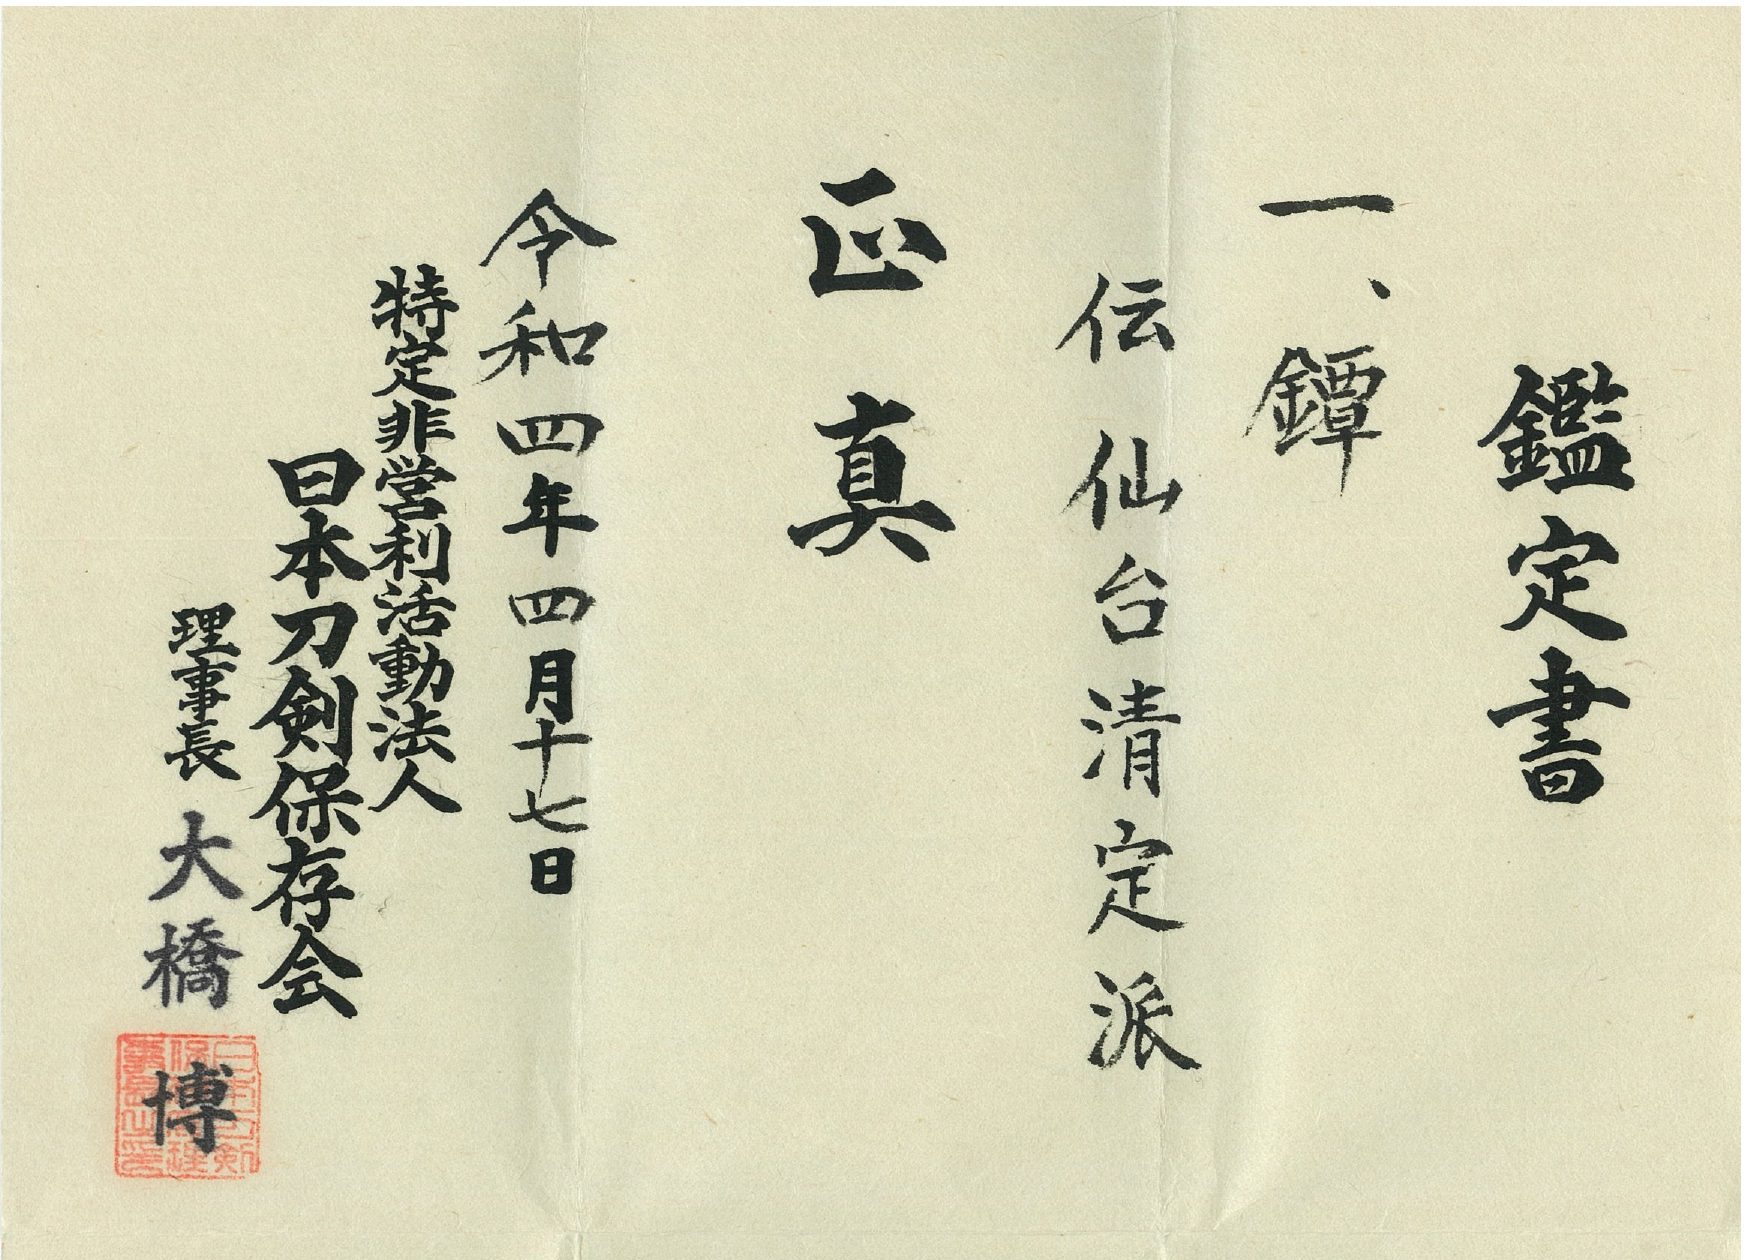 鑑定書
一、鐔
伝仙台清定派
正真
令和四年四月十七日
特定非営利活動法人
日本刀剣保存会
理事長 大橋 博